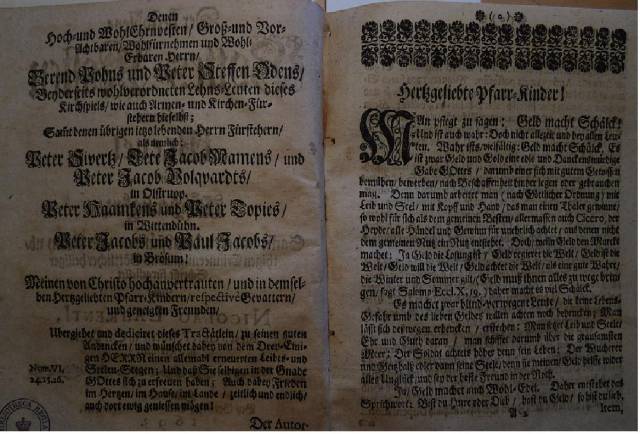 Denen
Hoch-und WohlEhrnvesten/ Groß-und Vor-
sichtbaren/ Wohlfürnehmen und Wohl-
Erbaren Herrn/
Berend Pohns und Peter Steffen Odens/
Beyderseits wohlverordneten Lehns-Leuten dieses
Kirchspiels/ wie auch Armen- und Kirchen-Für-
stehern hieselbst;
Sambt denen übrigen itzo lebenden Herrn Fürstehern/
als nemlich:
Peter Sivertz/ Tete Jacob Mamens/ und
Peter Jacob Volqvardts/
in Olstrupp.
Peter Haamkens und Peter Topies/
in Wittendühn.
Peter Jacobs und Paul Jacobs/
in Brösum!
Meinen von Christo hochanvertrauten/ und in demsel-
ben Hertzgeliebten Pfarr-Kindern/ respective Gevattern/
und geneigten Freunden,
Ubergiebt und dediciret dieses Tractätlein/ zu seinen guten
Andencken/ und wünschet dabey von dem Drey-Eini-
gen HERRN einen allemahl erneuerten Leibes- und
Seelen-Segen; Und daß Sie selbigen in der Gnade
Num. VI,
24. 25. 26.
GOttes sich zu erfreuen haben; Auch dabey Frieden
im Hertzen/ im Hause/ im Lande/ zeitlich und endlich/
auch dort ewig geniessen mögen!
Der Autor.
Hertzgeliebte Pfarr-Kinder!
MAn pflegt zu sagen: Geld macht Schälck!
Und ist auch wahr: Doch nicht allezeit und bey allen Leu-
ten. Wahr ists vielfältig: Geld macht Schälck. Es
ist zwar Geld und Gold eine edle und Danckenswürdige
Gabe GOttes/ darum einer sich mit gutem Gewissen
bemühen/ bewerben/ nach Beschaffenheit hinterlegen oder gebrauchen
mag. Denn darum arbeitet man (nach Göttlicher Ordnung) mit
Leib und Seel/ mit Kopff und Hand/ das man einen Thaler gewinne/
so wohl für sich als dem gemeinen Besten/ allermassen auch Cicero, der
Heyde/ alle Händel und Gewinn für unehrlich achtet/ aus denen nicht
dem gemeinen Nutz ein Nutz entstehet. Doch/ weiln Geld den Marckt
machet: Ja Geld die Losung ist/ Geld regieret die Welt/ Geld ist die
Welt/ Geld will die Welt/ Geld achtet die Welt/ als eine gute Wahre/
die Winter und Sommer gilt/ Geld muß ihnen alles zu wege brin-
gen/ sagt Salomo Eccl. X, 19. daher machet es viel Schälck.
Es machet zwar blind-verwegene Leute/ die keine Lebens-
Gefahr umb des lieben Geldes willen achten noch bedencken; Man
läst sich deswegen erhencken/ erstechen: Man setzet Leib und Seele/
Ehr und Guth daran/ man schiffet darum über die grausamsten
Meer; Der Soldat achtets höher denn sein Leben; Der Wucherer
und Geitzhals eher dann seine Seele/ denn sie meinen/ Geld helffe wider
alles Unglück/ und sey der beste Freund in der Noth.
Ja/ Geld machet auch Wohl-Edel. Daher entstehet das
Sprichwort: Bist du Hure oder Dieb/ hast du Geld/ so bist du lieb.
A 2
Item,